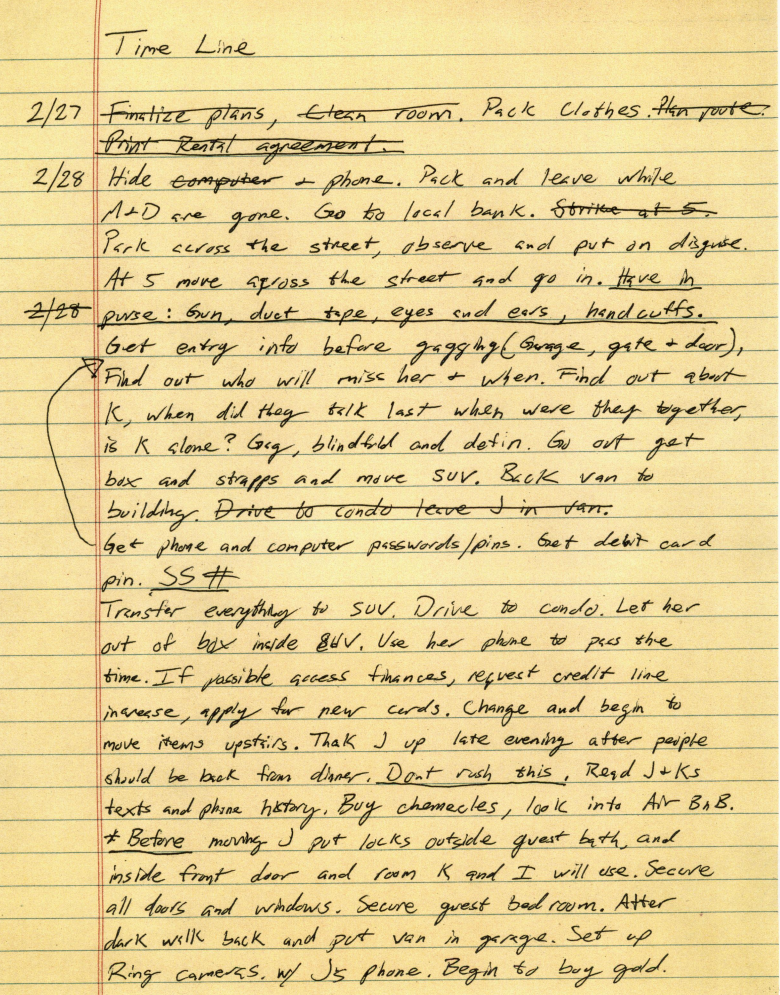 Time Line
2/27 Finalize plans, Clean room. Pack Clothes. Plan route.
Print Rental agreement.
2/28 Hide computer + phone. Pack and leave while
M+D are gone. Go to local bank. Strike at 5.
Park across the street, observe and put on disguise.
At 5 move across the street and go in. Have in
2/28 purse: Gun, duct tape, eyes and ears, handcuffs.
Get entry into before gagging (Garage, gate + door),
Find out who will miss her + when. Find out about
K, when did they talk last when were they together,
is K alone? Gag, blindfold and defin. Go out get
box and strapps and move SUV. Back van to
building. Drive to condo leave J in van.
Get phone and computer passwords/pins. Get debit card
pin. SS #
Transfer everything to SUV. Drive to condo. Let her
out of box inside SUV. Use her phone to pass the
time. If possible access finances, request credit line
increase, apply for new cards. Change and begin to
move items upstairs. Thak J up late evening after people
should be back from dinner. Dont rush this. Read J+Ks
texts and phone history. Buy chemecles, look into Air BnB.
* Before moving J put locks outside guest bath, and
inside front door and room K and I will use. Secure
all doors and windows. Secure guest bedroom. After
dark walk back and put van in garage. Set up
Ring cameras. w/ Js phone. Begin to buy gold.